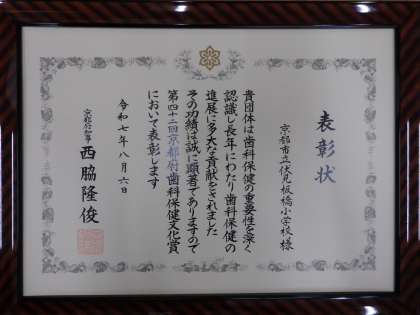 表彰状
京都市立伏見板橋小学校様
貴団体は歯科保健の重要性を深く
認識し長年にわたり歯科保健の
進展に多大な貢献をされました
その功績は誠に顕著でありますので
第四十二回京都府歯科保健文化賞
において表彰します
令和七年八月六日
京都府知事 西脇隆俊